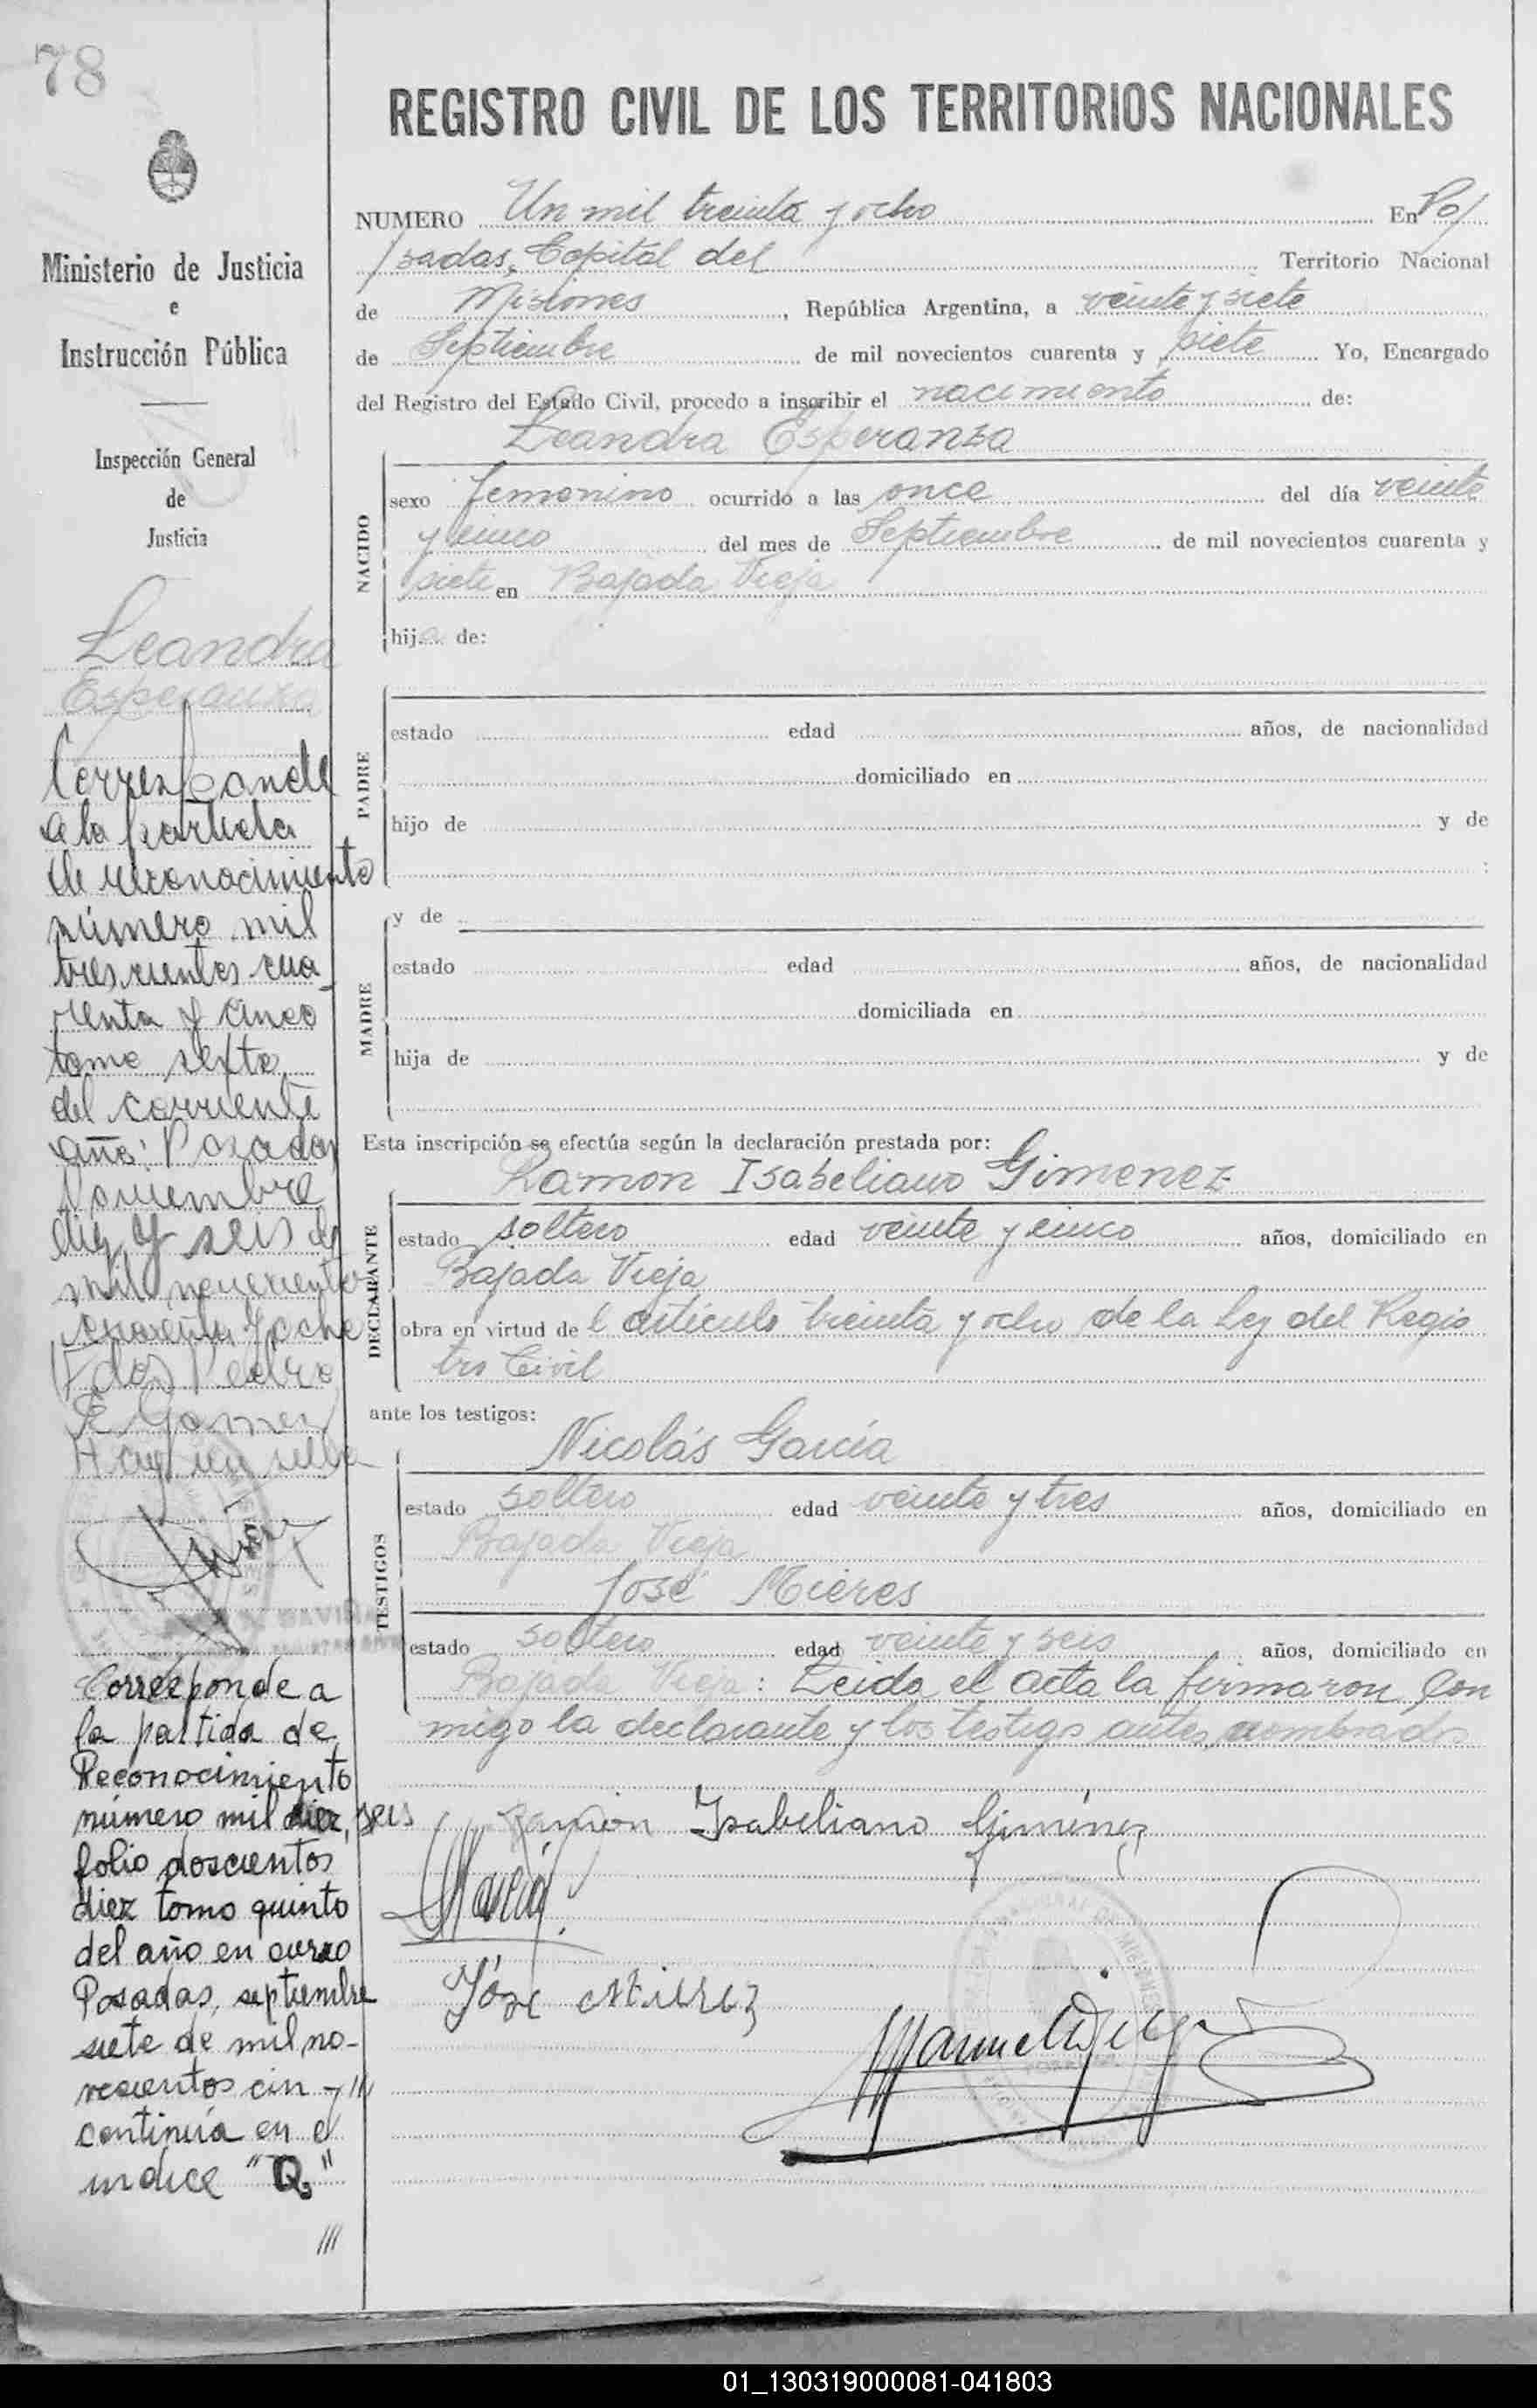 78
Ministerio de Justicia
e
Instrucción Pública
Inspección General
de
Justicia
Leandra
Esperanza
Corresponde
a la partida
de reconocimiento
número mil
trescientos cua
renta y cinco
tomo sexto
del corriente
año: Posadas
Noviembre
diez y seis de
mil novecientos
cuarenta y ocho
(Fdo) Pedro
E Gomez
Hay un sello
Corresponde a
la partida de
Reconocimiento
número mil diez, seis
folio doscientos
diez tomo quinto
del año en curso
Posadas, septiembre
siete de mil no-
vecientos cin
continúa en el
indice "Q"
///
REGISTRO CIVIL DE LOS TERRITORIOS NACIONALES
NUMERO Un mil treinta y ocho En Po/
/sadas, Capital del Territorio Nacional
de Misiones, República Argentina, a veinte y siete
de Septiembre de mil novecientos cuarenta y siete Yo, Encargado
del Registro del Estado Civil, procedo a inscribir el nacimiento de:
Leandra Esperanza
NACIDO
sexo femenino ocurrido a las once del día veinte
y cinco del mes de Septiembre de mil novecientos cuarenta y
siete en Bajada Vieja
hija de:
PADRE
estado edad años, de nacionalidad
domiciliado en
hijo de y de
;
MADRE
y de
estado edad años, de nacionalidad
domiciliada en
hija de y de
Esta inscripción se efectúa según la declaración prestada por:
Ramon Isabeliano Gimenez
DECLARANTE
estado soltero edad veinte y cinco años, domiciliado en
Bajada Vieja
obra en virtud del artículo treinta y ocho de la Ley del Regis
tro Civil
ante los testigos:
Nicolás García
TESTIGOS
estado soltero edad veinte y tres años, domiciliado en
Bajada Vieja
José Mieres
estado soltero edad veinte y seis años, domiciliado en
Bajada Vieja: Leida el acta la firmaron con
migo la declarante y los testigos antes nombrados
Ramón Isabeliano Giménez
NGarcía
José Mierez
01_130319000081-041803